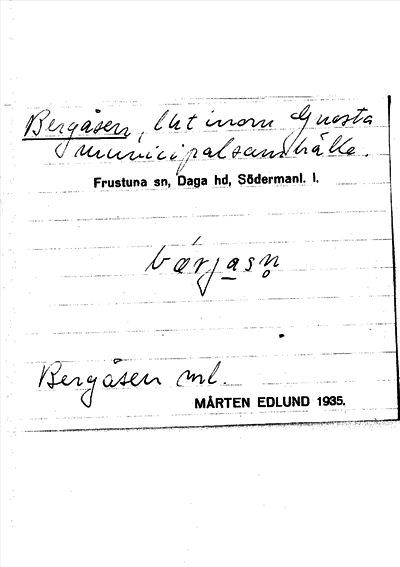 Bergåsen, lht inom Gnesta
municipalsamhälle.
Frustuna sn, Daga hd, Södermanl. l.
bærjasn̥
Bergåsen ml.
MÅRTEN EDLUND 1935.